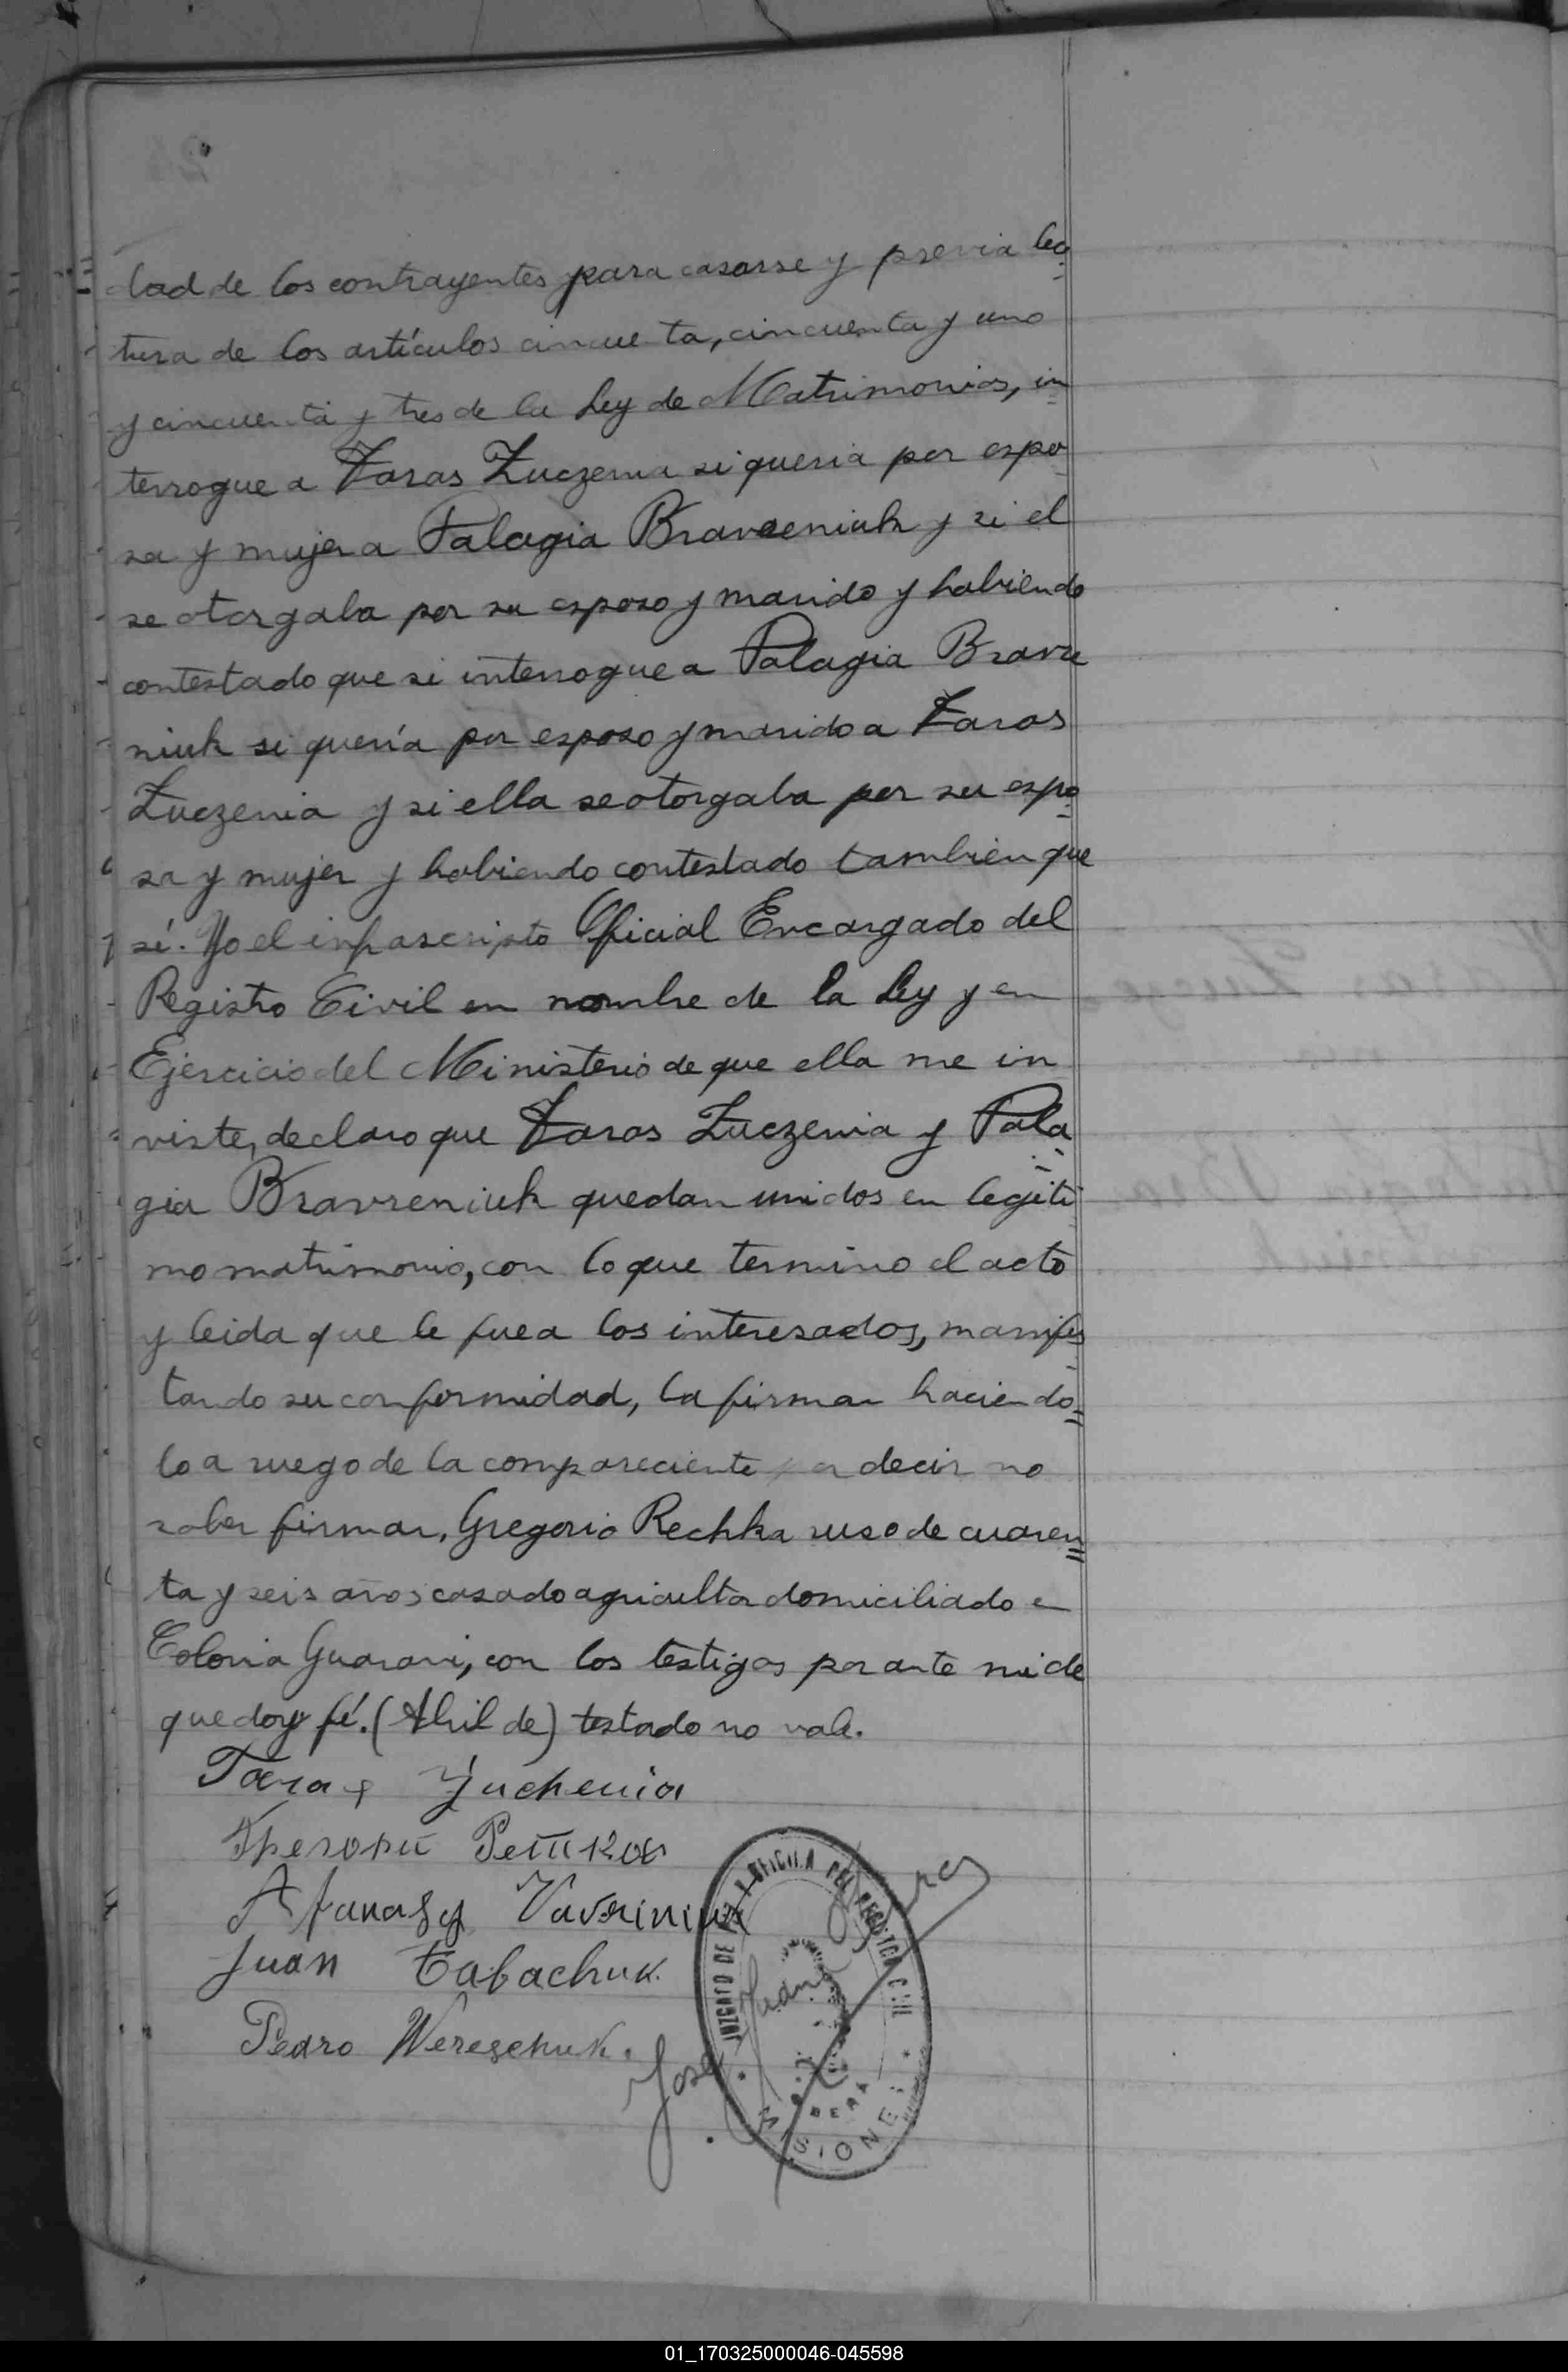 dad de los contrayentes para casarse y previa lec
tura de los artículos cincuenta, cincuenta y uno
y cincuenta y tres de la Ley de Matrimonios, in
terrogue a Taras Zuczenia si queria por espo
sa y mujer a Palagia Bravreniuk y si el
se otorgaba por su esposo y marido y habiendo
contestado que si interrogue a Palagia Bravre
niuk si quería por esposo y marido a Taras
Zuczenia y si ella se otorgaba por su espo
sa y mujer y habiendo contestado tambien que
sí. Yo el infrascripto Oficial Encargado del
Registro Civil en nombre de la Ley y en
Ejercicio del Ministerio de que ella me in
viste, declaro que Taras Zuczenia y Pala
gia Bravreniuk quedan unidos en legiti
mo matrimonio, con lo que termino el acto
y leida que le fue a los interesados, manifes
tando su conformidad, la firman haciendo
lo a ruego de la compareciente por decir no
saber firmar, Gregorio Rechka ruso de cuaren
ta y seis años casado agricultor domiciliado en
Colonia Guarani, con los testigos por ante mi de
que doy fé. (Abril de) testado no vale.
Taras Juchenia
Грегори Решка
Afanasy Vavriniuk
Juan Tabachuk.
Pedro Wereschuk.
José Juan
JUZGADO DE PAZ Y OFICINA DEL REGISTRO CIVIL
OBERA
MISIONES
01_170325000046-045598